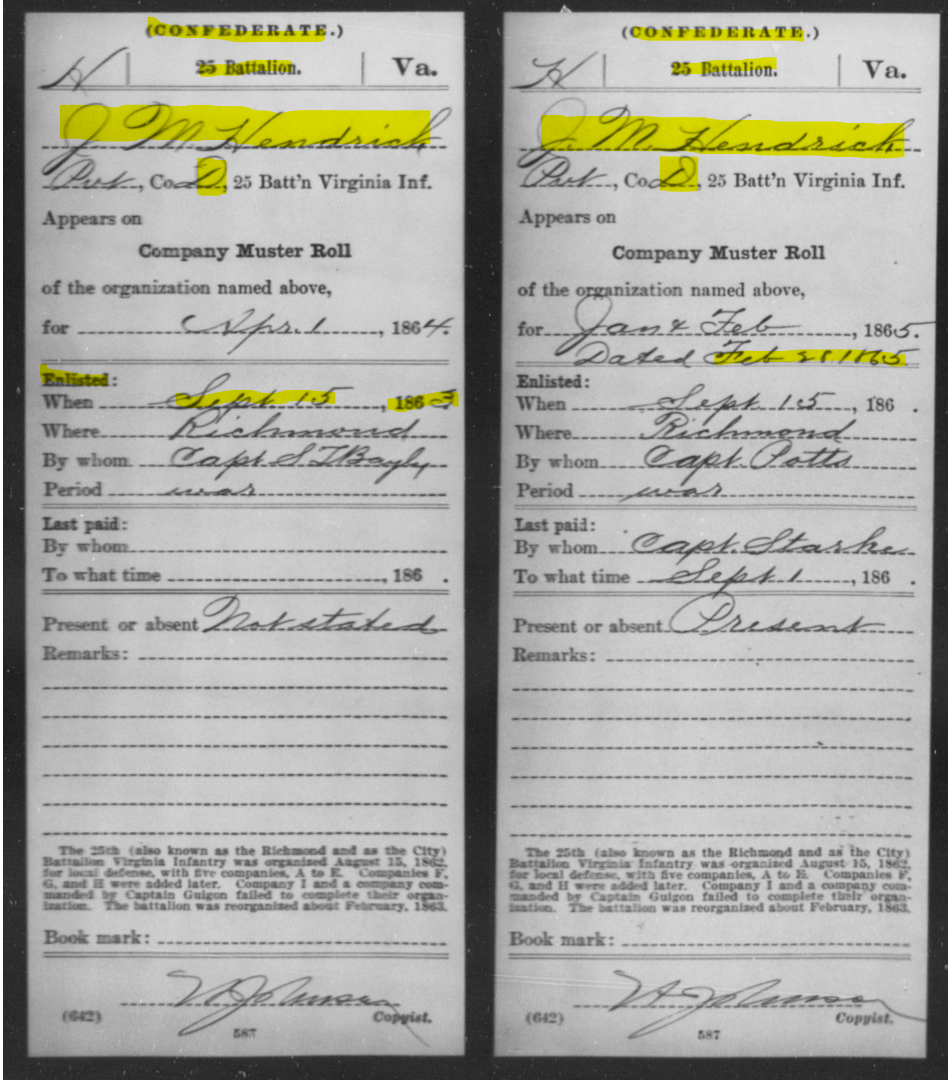 (CONFEDERATE.)
H | 25 Battalion. | Va.
J M Hendrick
Pvt, Co. D, 25 Batt'n Virginia Inf.
Appears on
Company Muster Roll
of the organization named above,
for Apr. 1, 1864.
Enlisted:
When Sept 15, 1863
Where Richmond
By whom Capt S T Bayly
Period war
Last paid:
By whom
To what time , 186 .
Present or absent Not stated
Remarks:
The 25th (also known as the Richmond and as the City)
Battalion Virginia Infantry was organized August 15, 1862,
for local defense, with five companies, A to E. Companies F,
G, and H were added later. Company I and a company com-
manded by Captain Guigon failed to complete their organ-
ization. The battalion was reorganized about February, 1863.
Book mark:
Copyist.
(642)
(CONFEDERATE.)
H | 25 Battalion. | Va.
J. M. Hendrick
Pvt, Co. D, 25 Batt'n Virginia Inf.
Appears on
Company Muster Roll
of the organization named above,
for Jan & Feb, 1865.
Dated Feb 28 1865
Enlisted:
When Sept 15, 186 .
Where Richmond
By whom Capt. Potts
Period war
Last paid:
By whom Capt. Starke
To what time Sept 1, 186 .
Present or absent Present
Remarks:
The 25th (also known as the Richmond and as the City)
Battalion Virginia Infantry was organized August 15, 1862,
for local defense, with five companies, A to E. Companies F,
G, and H were added later. Company I and a company com-
manded by Captain Guigon failed to complete their organ-
ization. The battalion was reorganized about February, 1863.
Book mark:
(642)
Copyist.
587